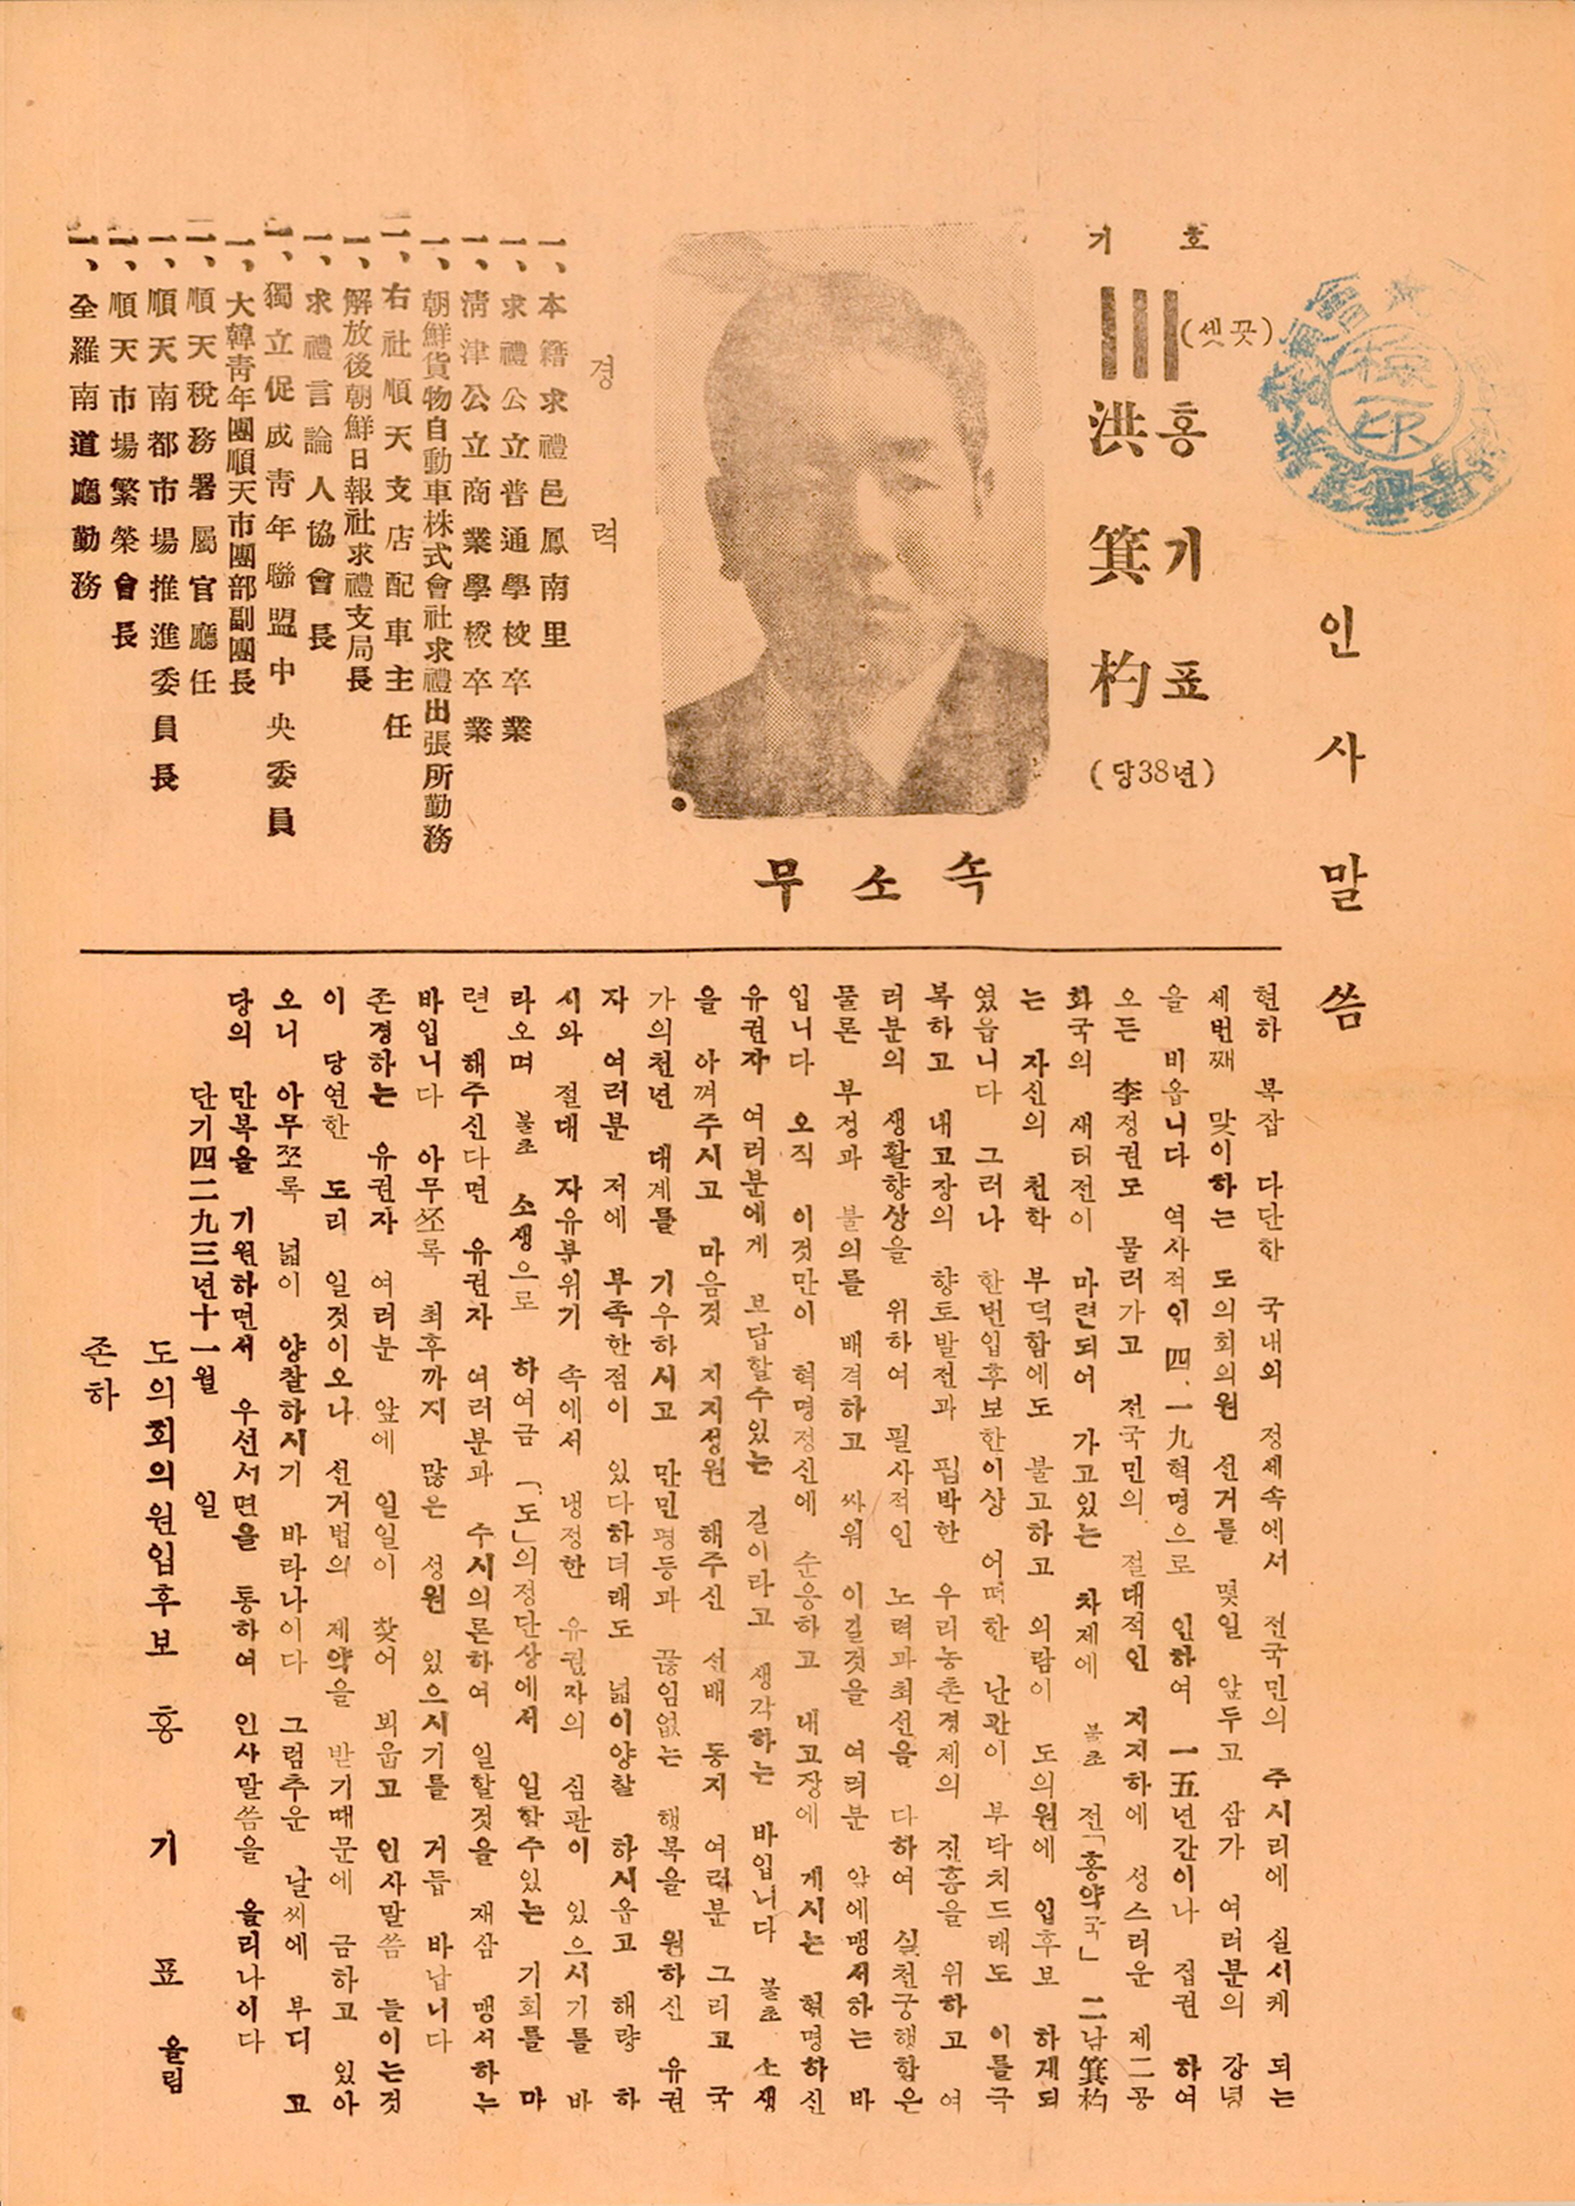 인사말씀
기호
(셋끗)
홍기표
洪箕杓
(당38년)
무소속
경력
一、本籍求禮邑鳳南里
一、求禮公立普通學校卒業
一、淸津公立商業學校卒業
一、朝鮮貨物自動車株式會社求禮出張所勤務
一、右社順天支店配車主任
一、解放後朝鮮日報社求禮支局長
一、求禮言論人協會長
一、獨立促成靑年聯盟中央委員
一、大韓靑年團順天市團部副團長
一、順天稅務署屬官廳任
一、順天南都市場推進委員長
一、順天市場繁榮會長
一、全羅南道廳勤務
현하 복잡 다단한 국내외 정세속에서 전국민의 주시리에 실시케 되는
세번째 맞이하는 도의회의원 선거를 몇일 앞두고 삼가 여러분의 강녕
을 비옵니다 역사적인 四、一九혁명으로 인하여 一五년간이나 집권 하여
오든 李정권도 물러가고 전국민의 절대적인 지지하에 성스러운 제二공
화국의 새터전이 마련되여 가고있는 차제에 불초 전「홍약국」二남箕杓
는 자신의 천학 부덕함에도 불고하고 외람이 도의원에 입후보 하게되
였읍니다 그러나 한번입후보한이상 어떠한 난관이 부닥치드래도 이를극
복하고 내고장의 향토발전과 핍박한 우리농촌경제의 진흥을 위하고 여
러분의 생활향상을 위하여 필사적인 노력과최선을 다하여 실천궁행함은
물론 부정과 불의를 배격하고 싸워 이길것을 여러분 앞에맹서하는 바
입니다 오직 이것만이 혁명정신에 순응하고 내고장에 게시는 혁명하신
유권자 여러분에게 보답할수있는 길이라고 생각하는 바입니다 불초 소생
을 아껴주시고 마음것 지지성원 해주신 선배 동지 여러분 그리고 국
가의천년 대계를 기우하시고 만민평등과 끊임없는 행복을 원하신 유권
자 여러분 저에 부족한점이 있다하더래도 넓이양찰 하시옵고 해량 하
시와 절대 자유분위기 속에서 냉정한 유권자의 심판이 있으시기를 바
라오며 불초 소생으로 하여금 「도」의정단상에서 일할수있는 기회를 마
련 해주신다면 유권자 여러분과 수시의론하여 일할것을 재삼 맹서하는
바입니다 아무쪼록 최후까지 많은 성원 있으시기를 거듭 바랍니다
존경하는 유권자 여러분 앞에 일일이 찾어 뵈옵고 인사말씀 들이는것
이 당연한 도리 일것이오나 선거법의 제약을 받기때문에 금하고 있아
오니 아무쪼록 넓이 양찰하시기 바라나이다 그럼추운 날씨에 부디 고
당의 만복을 기원하면서 우선서면을 통하여 인사말씀을 올리나이다
단기四二九三년十一월 일
도의회의원입후보 홍기표 올림
존하